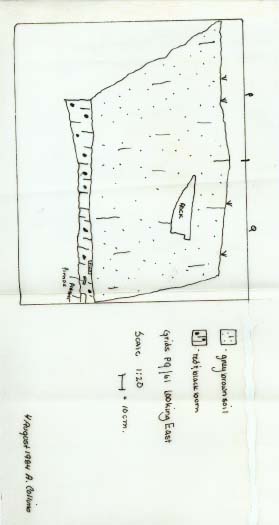 P
Q
ROCK
- grey brown soil
- red & black loam
Grids PQ/61 Looking East
Scale 1:20
= 10 cm.
4 August 1984 A. Collins